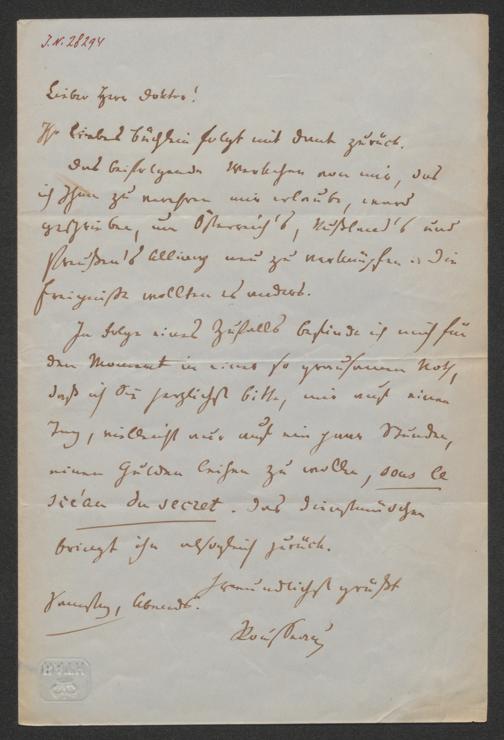 J.N. 28294
Lieber Herr Doktor!
Ihr liebes Büchlein folgt mit Dank zurück.
Das beifolgende Werkchen von mir, das
ich Ihnen zu verehren mir erlaube, ward
geschrieben, um Österreich's, Rußland's und
Preußen's Allianz neu zu verknüpfen – die
Ereigniße wollten es anders.
In Folge eines Zufalls befinde ich mich für
den Moment in einer so grausamen Noth,
daß ich Sie herzlichst bitte, mir auf einen
Tag, vielleicht nur auf ein paar Stunden,
einen Gulden leihen zu wollen, sous le
scéau du secret. Das Dienstmädchen
bringt ihn alsogleich zurück.
Freundlichst grüßt
Samstag, Abends.
Rousseau